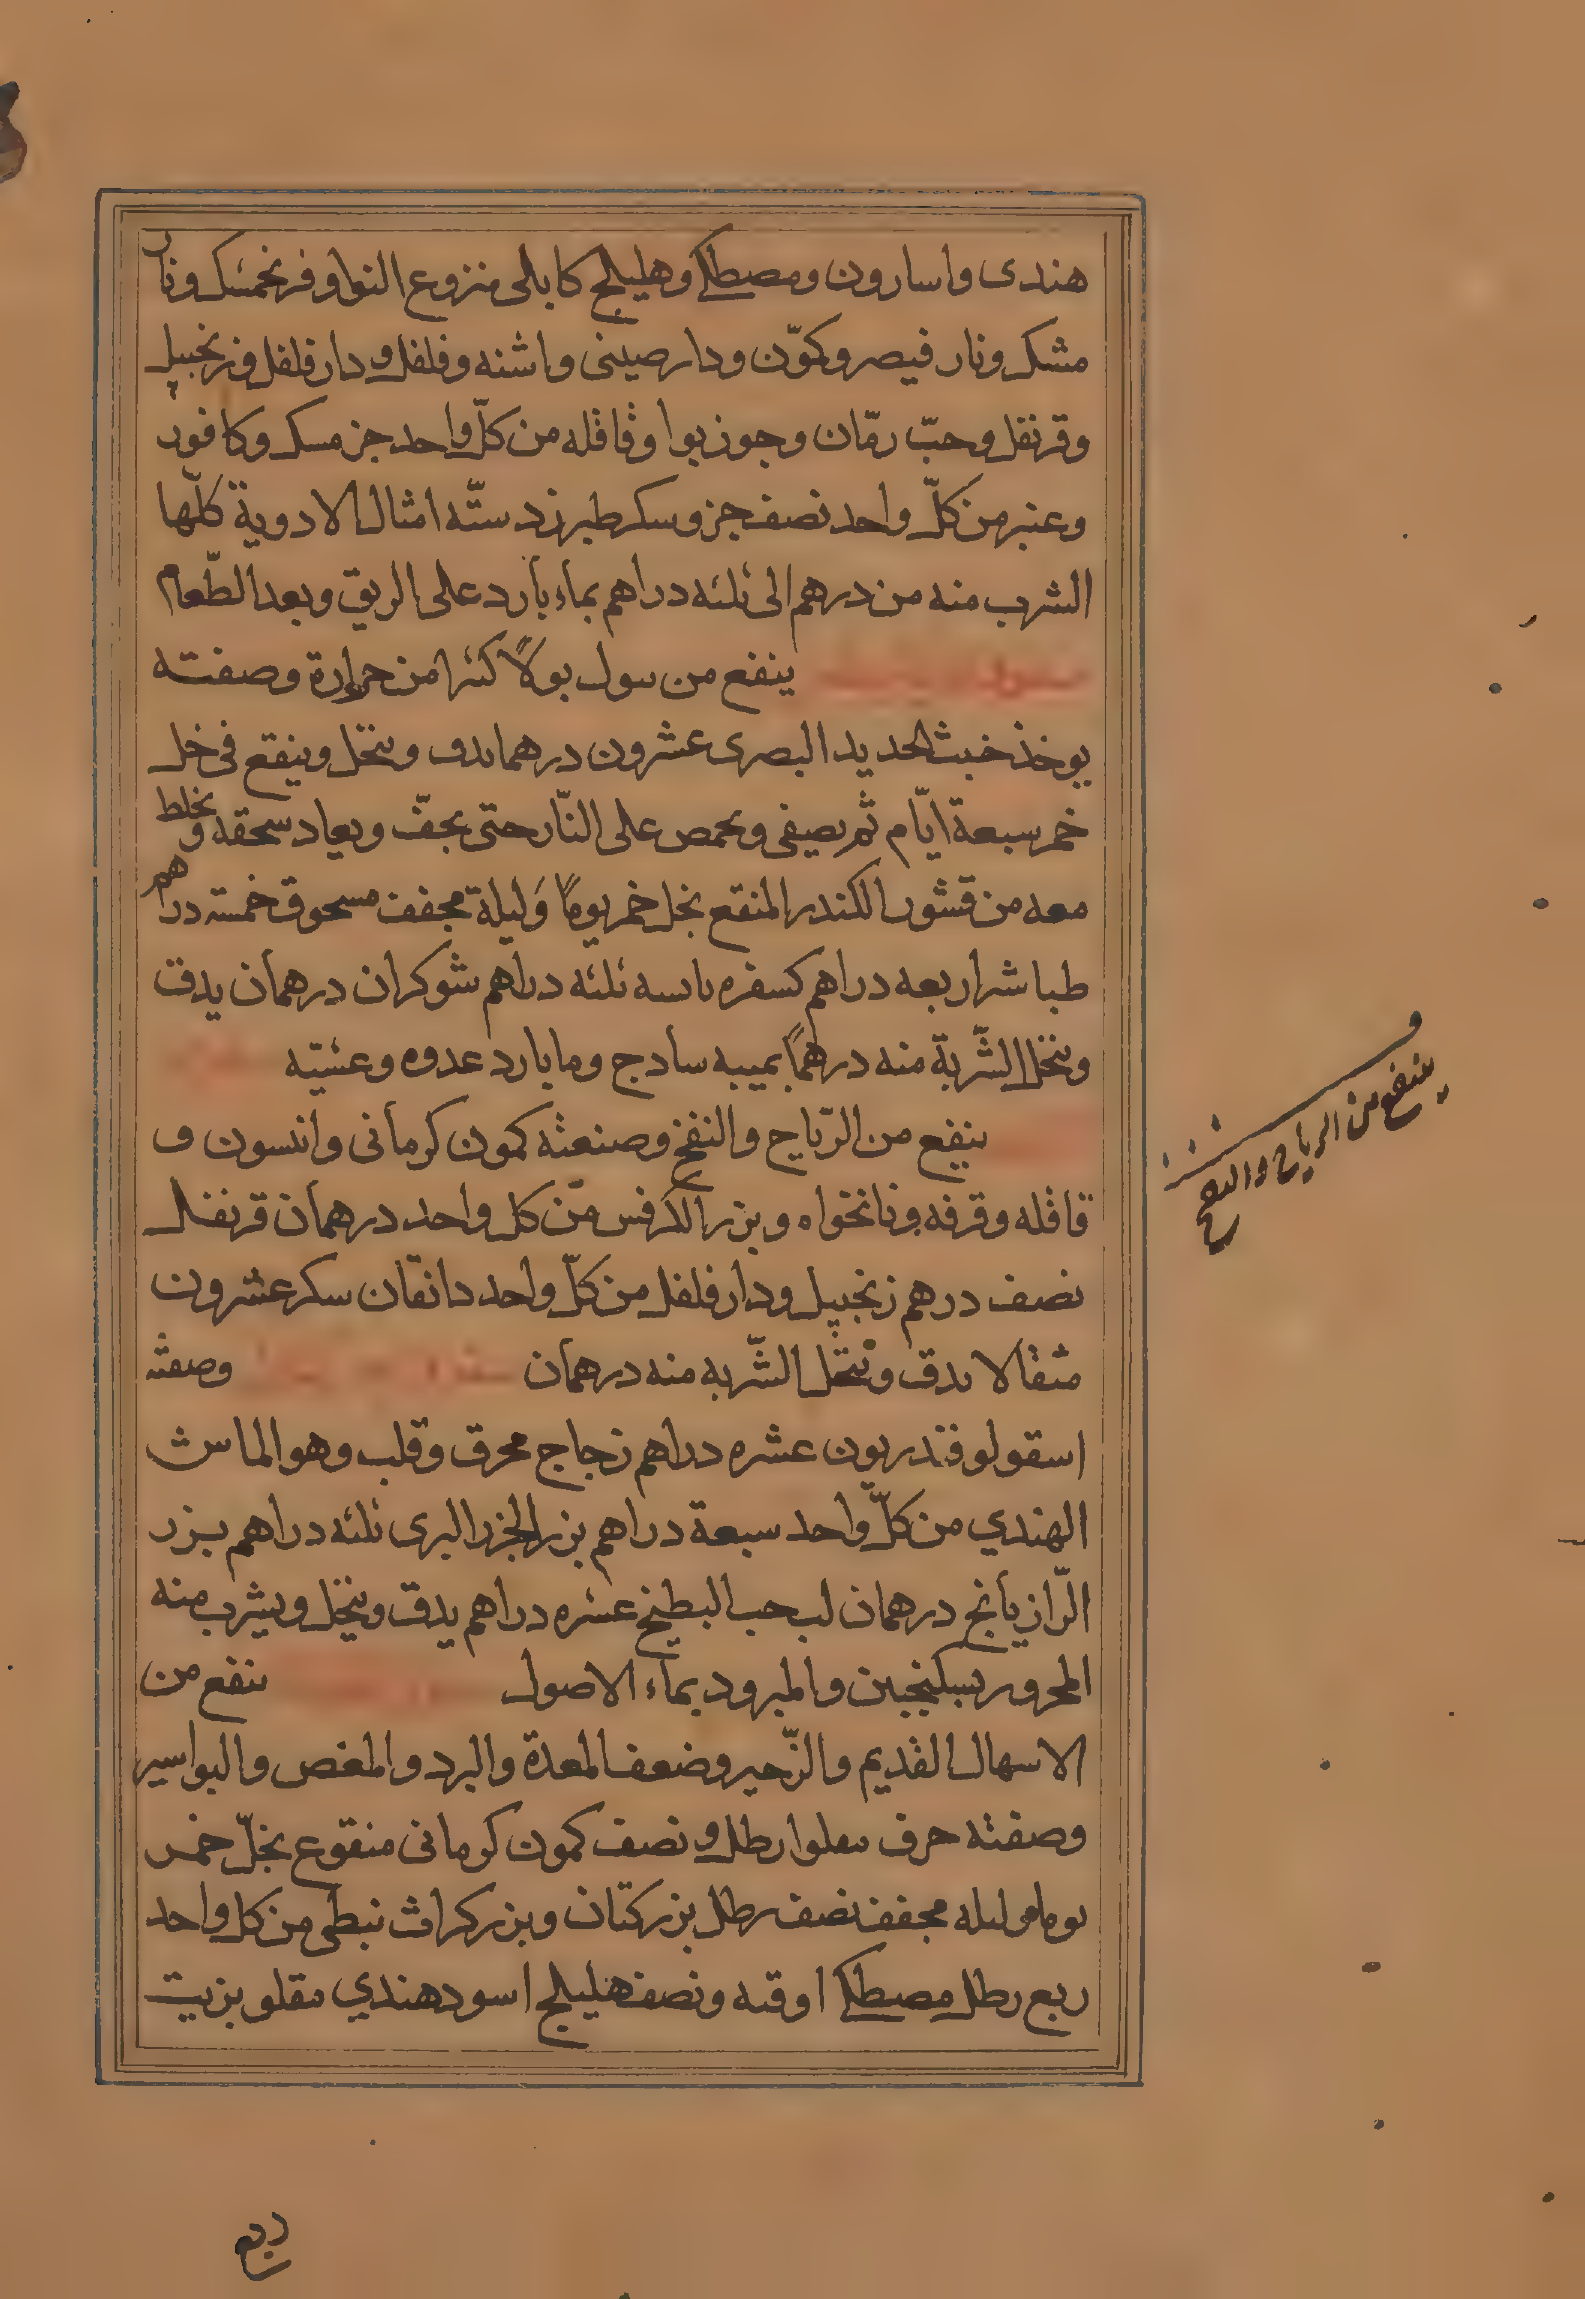 هندى واسارون ومصطكى وهليلج كابلى منزوع النوا وفرنجمشك ونار
مشك ونار قيصر وكمّون ودارصينى واشنه وفلفل ودارفلفل وزنجبيل
وقرنفل وحبّ رمّان وجوزبوا وقاقله من كلّ واحد جز مسك وكافور
وعنبر من كلّ واحد نصف جز وسكر طبرزد ستّه امثال الادوية كلّها
الشرب منه من درهم الى ثلثه دراهم بماء بارد على الريق وبعد الطّعام
ينفع من سول بولاً كثيرا من حرارة وصفته
يوخذ خبث الحديد البصرى عشرون درهما يدق وينخل وينقع فى خل
خمر سبعة ايّام ثم يصفى ويحمص على النّار حتى يجفّ ويعاد سحقه ويخلط
معه من قشور الكندر المنقع بخل خمر يوماً وليلة مجفف مسحوق خمسه دراهم
طباشير اربعه دراهم كسفره يابسه ثلثه دراهم شوكران درهمان يدق
وينخل الشّربة منه درهماً بميبه سادج وما بارد غدوه وعشيّه
ينفع من الرّياح والنفخ وصنعته كمون كرمانى وانيسون و
قاقله وقرفه ونانخواه وبزر الكرفس من كل واحد درهمان قرنفل
نصف درهم زنجبيل ودارفلفل من كلّ واحد دانقان سكر عشرون
مثقالا يدق وينخل الشّربه منه درهمان وصفته
اسقولوفندريون عشره دراهم زجاج محرق وقلب وهو الماش
الهندي من كلّ واحد سبعة دراهم بزر الجزر البرى ثلثه دراهم بزر
الرّازيانج درهمان لب حب البطيخ عشره دراهم يدق وينخل ويشرب منه
المحرور بسكنجبين والمبرود بماء الاصول ينفع من
الاسهال القديم والزّحير وضعف المعدة والبرد والمغص والبواسير
وصفته حرف مقلوا رطل ونصف كمون كرمانى منقوع بخلّ خمر
يوما وليله مجفف نصف رطل بزر كتان وبزر كراث نبطى من كل واحد
ربع رطل مصطكى اوقيه ونصف هليلج اسود هندي مقلو بزيت
ينفع من الرياح والنفخ